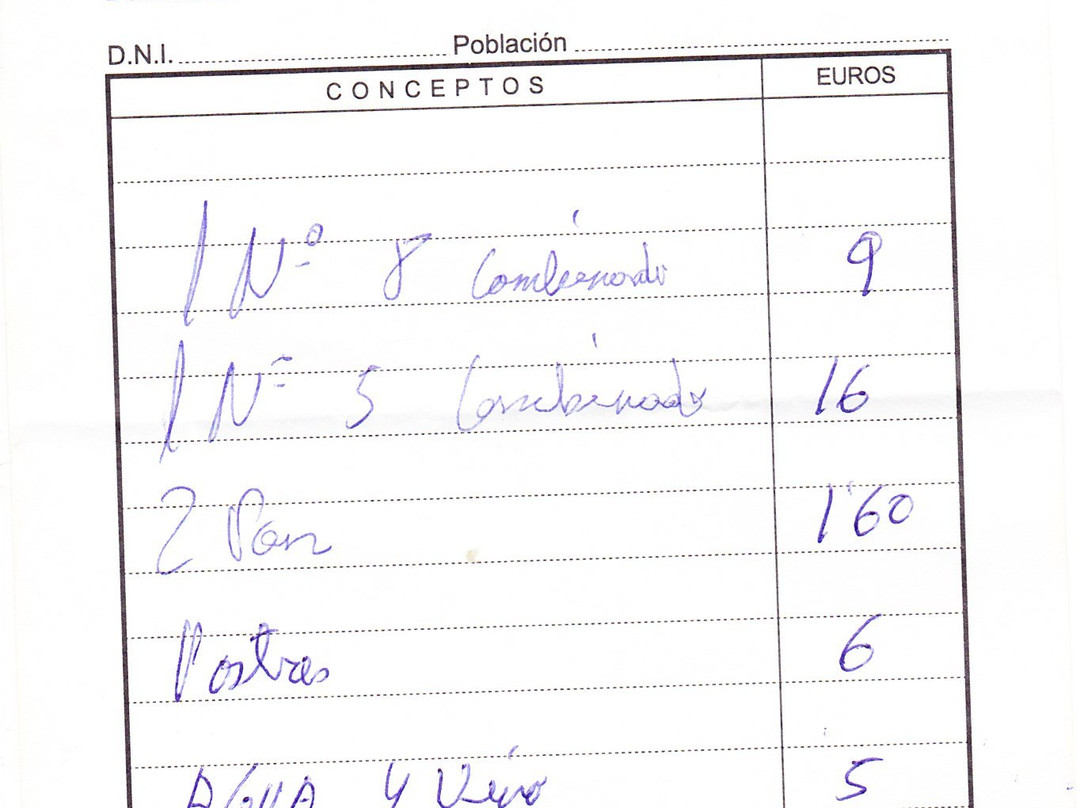 D.N.I. Población
CONCEPTOS EUROS
1 Nº 8 Combinado 9
1 Nº 5 Combinado 16
2 Pan 1'60
Postres 6
AGUA Y Vino 5